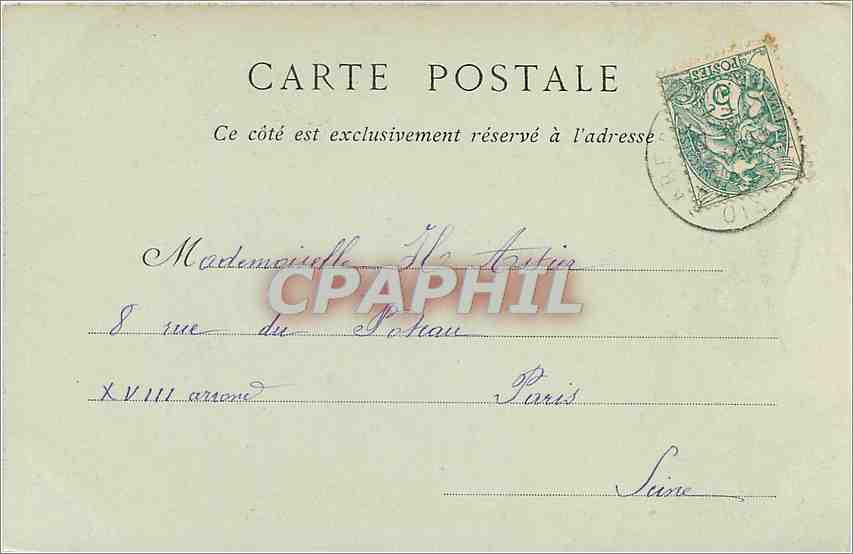 CARTE POSTALE
Ce côté est exclusivement réservé à l'adresse
POSTES
5
Mademoiselle H Astier
CPAPHIL
8 rue du Poteau
XVIII arrond
Paris
Seine